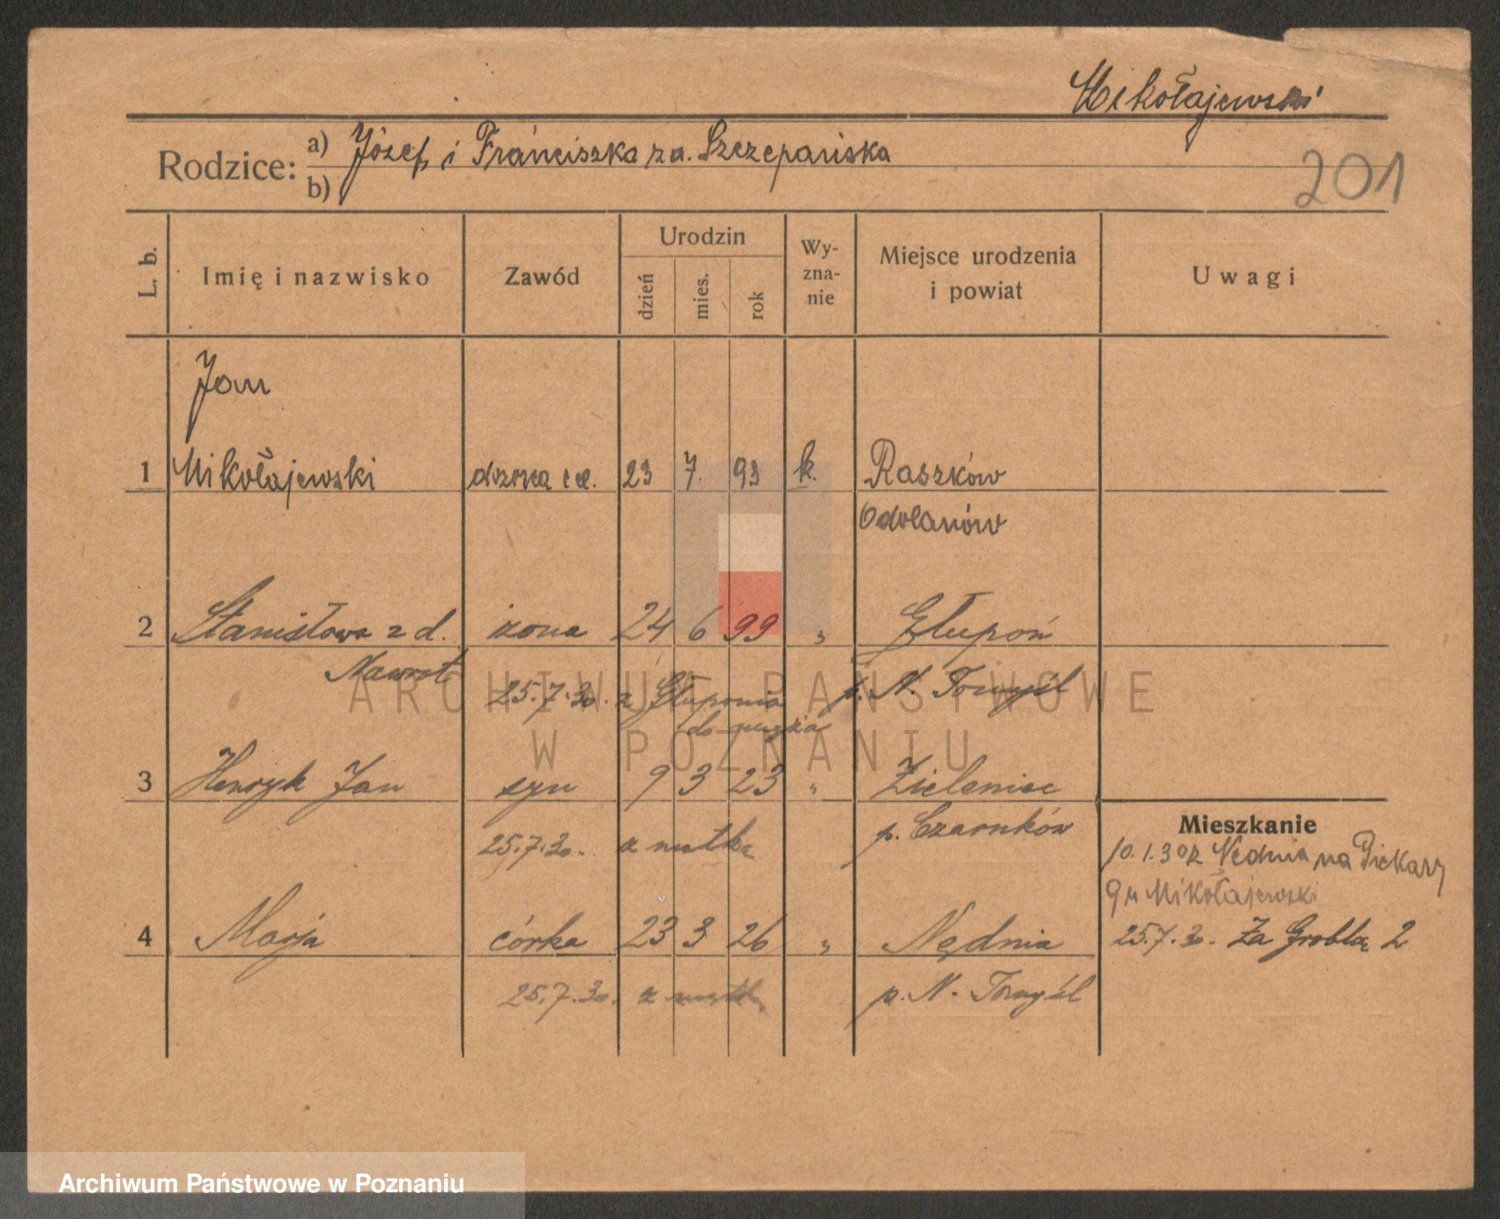 Mikołajewski
Rodzice: a) Józef i Franciszka z d. Szczepańska
b)
201
L. b. Imię i nazwisko Zawód Urodzin dzień mies. rok Wy-zna-nie Miejsce urodzenia i powiat Uwagi
Jan
1 Mikołajewski dozorca 23 7. 93 k. Raszków
Odolanów
2 Stanisława z d. żona 24 6 99 " Głupoń
Nawrot 25.7.30. z Głuponia p. N. Tomyśl
do męża
3 Henryk Jan syn 9 3 23 " Zieleniec
Mieszkanie
25.7.30. z matką p. Czarnków
10.1.30 z Nednia na Piekary
9 u Mikołajewski
4 Marja córka 23 3 26 " Nednia 25.7.30. Za Groblą 2
25.7.30. z matką p. N. Tomyśl
ARCHIWUM PAŃSTWOWE
W POZNANIU
Archiwum Państwowe w Poznaniu